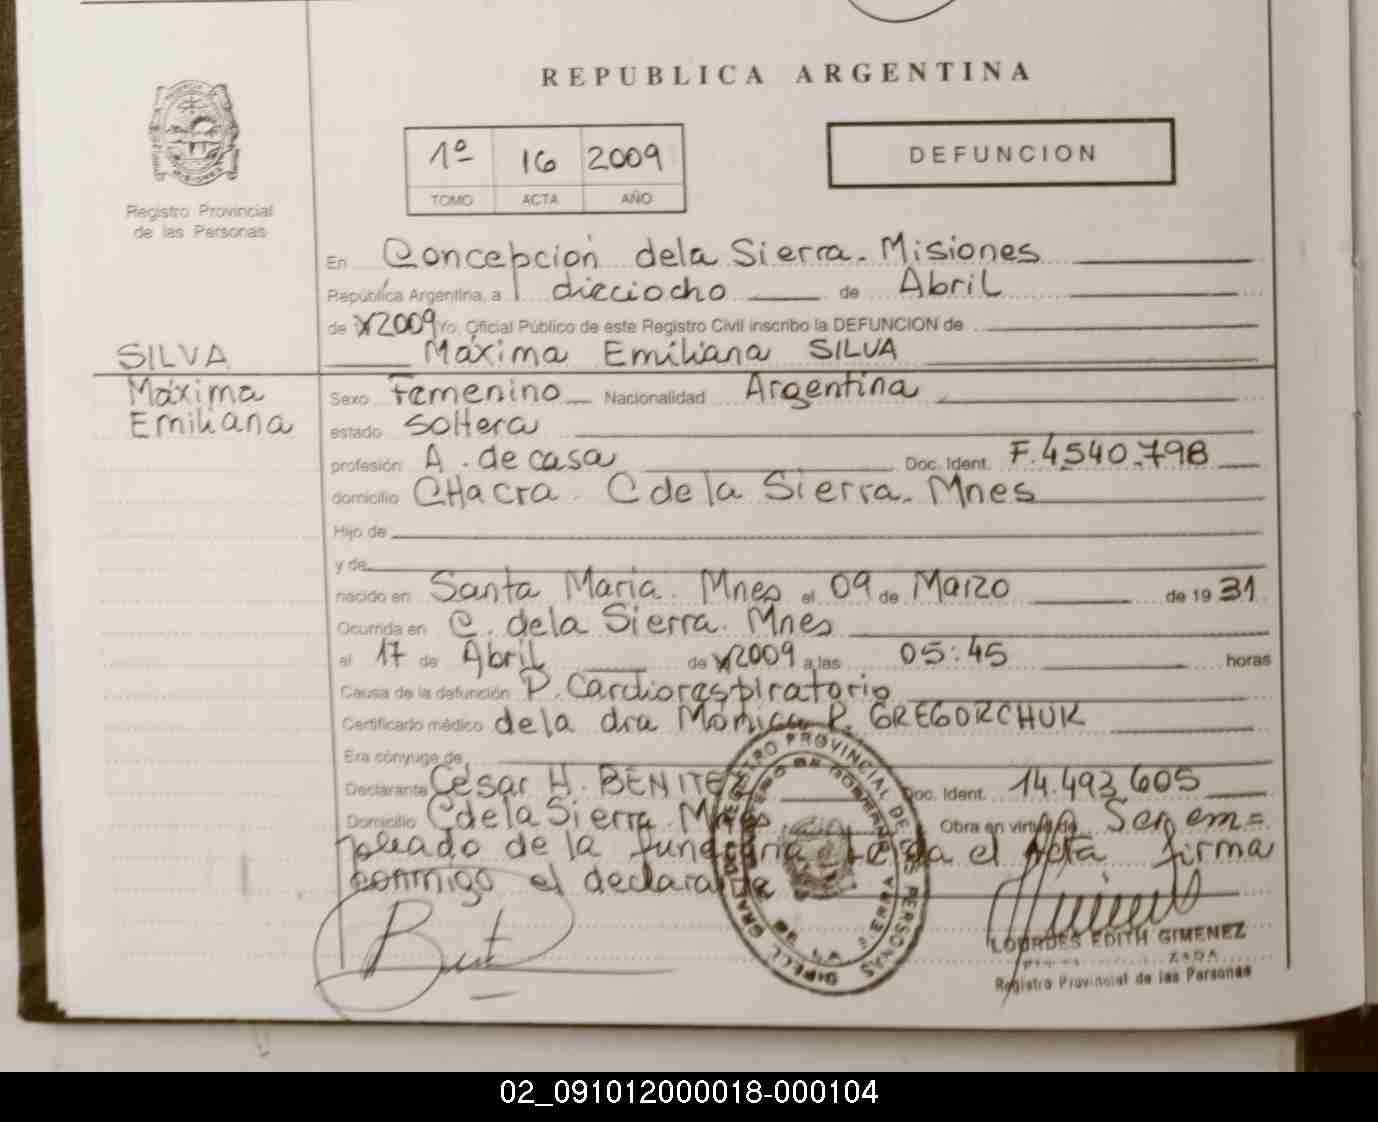 REPUBLICA ARGENTINA
1º 16 2009
TOMO ACTA AÑO
DEFUNCION
Registro Provincial
de las Personas
En Concepción dela Sierra. Misiones
República Argentina, a dieciocho de Abril
de 2009 Yo, Oficial Público de este Registro Civil inscribo la DEFUNCION de
SILVA
Máxima
Emiliana
Máxima Emiliana SILVA
Sexo Femenino Nacionalidad Argentina
estado soltera
profesión A. de casa Doc. Ident. F.4540.798
domicilio CHacra. C de la Sierra. Mnes
Hijo de
y de
nacido en Santa Maria. Mnes el 09 de Marzo de 19 31
Ocurrida en C. dela Sierra. Mnes
el 17 de Abril de 2009 a las 05:45 horas
Causa de la defunción P. Cardiorespiratorio
Certificado médico de la dra Monica P. GREGORCHUK
Era cónyuge de
Declarante César H. BENITEZ Doc. Ident. 14.493.605
Domicilio C de la Sierra Mnes Obra en virtud de Ser em=
pleado de la funeraria Leída el Acta firma
conmigo el declarante
REGISTRO PROVINCIAL DE LAS PERSONAS
LOURDES EDITH GIMENEZ
Registro Provincial de las Personas
02_091012000018-000104